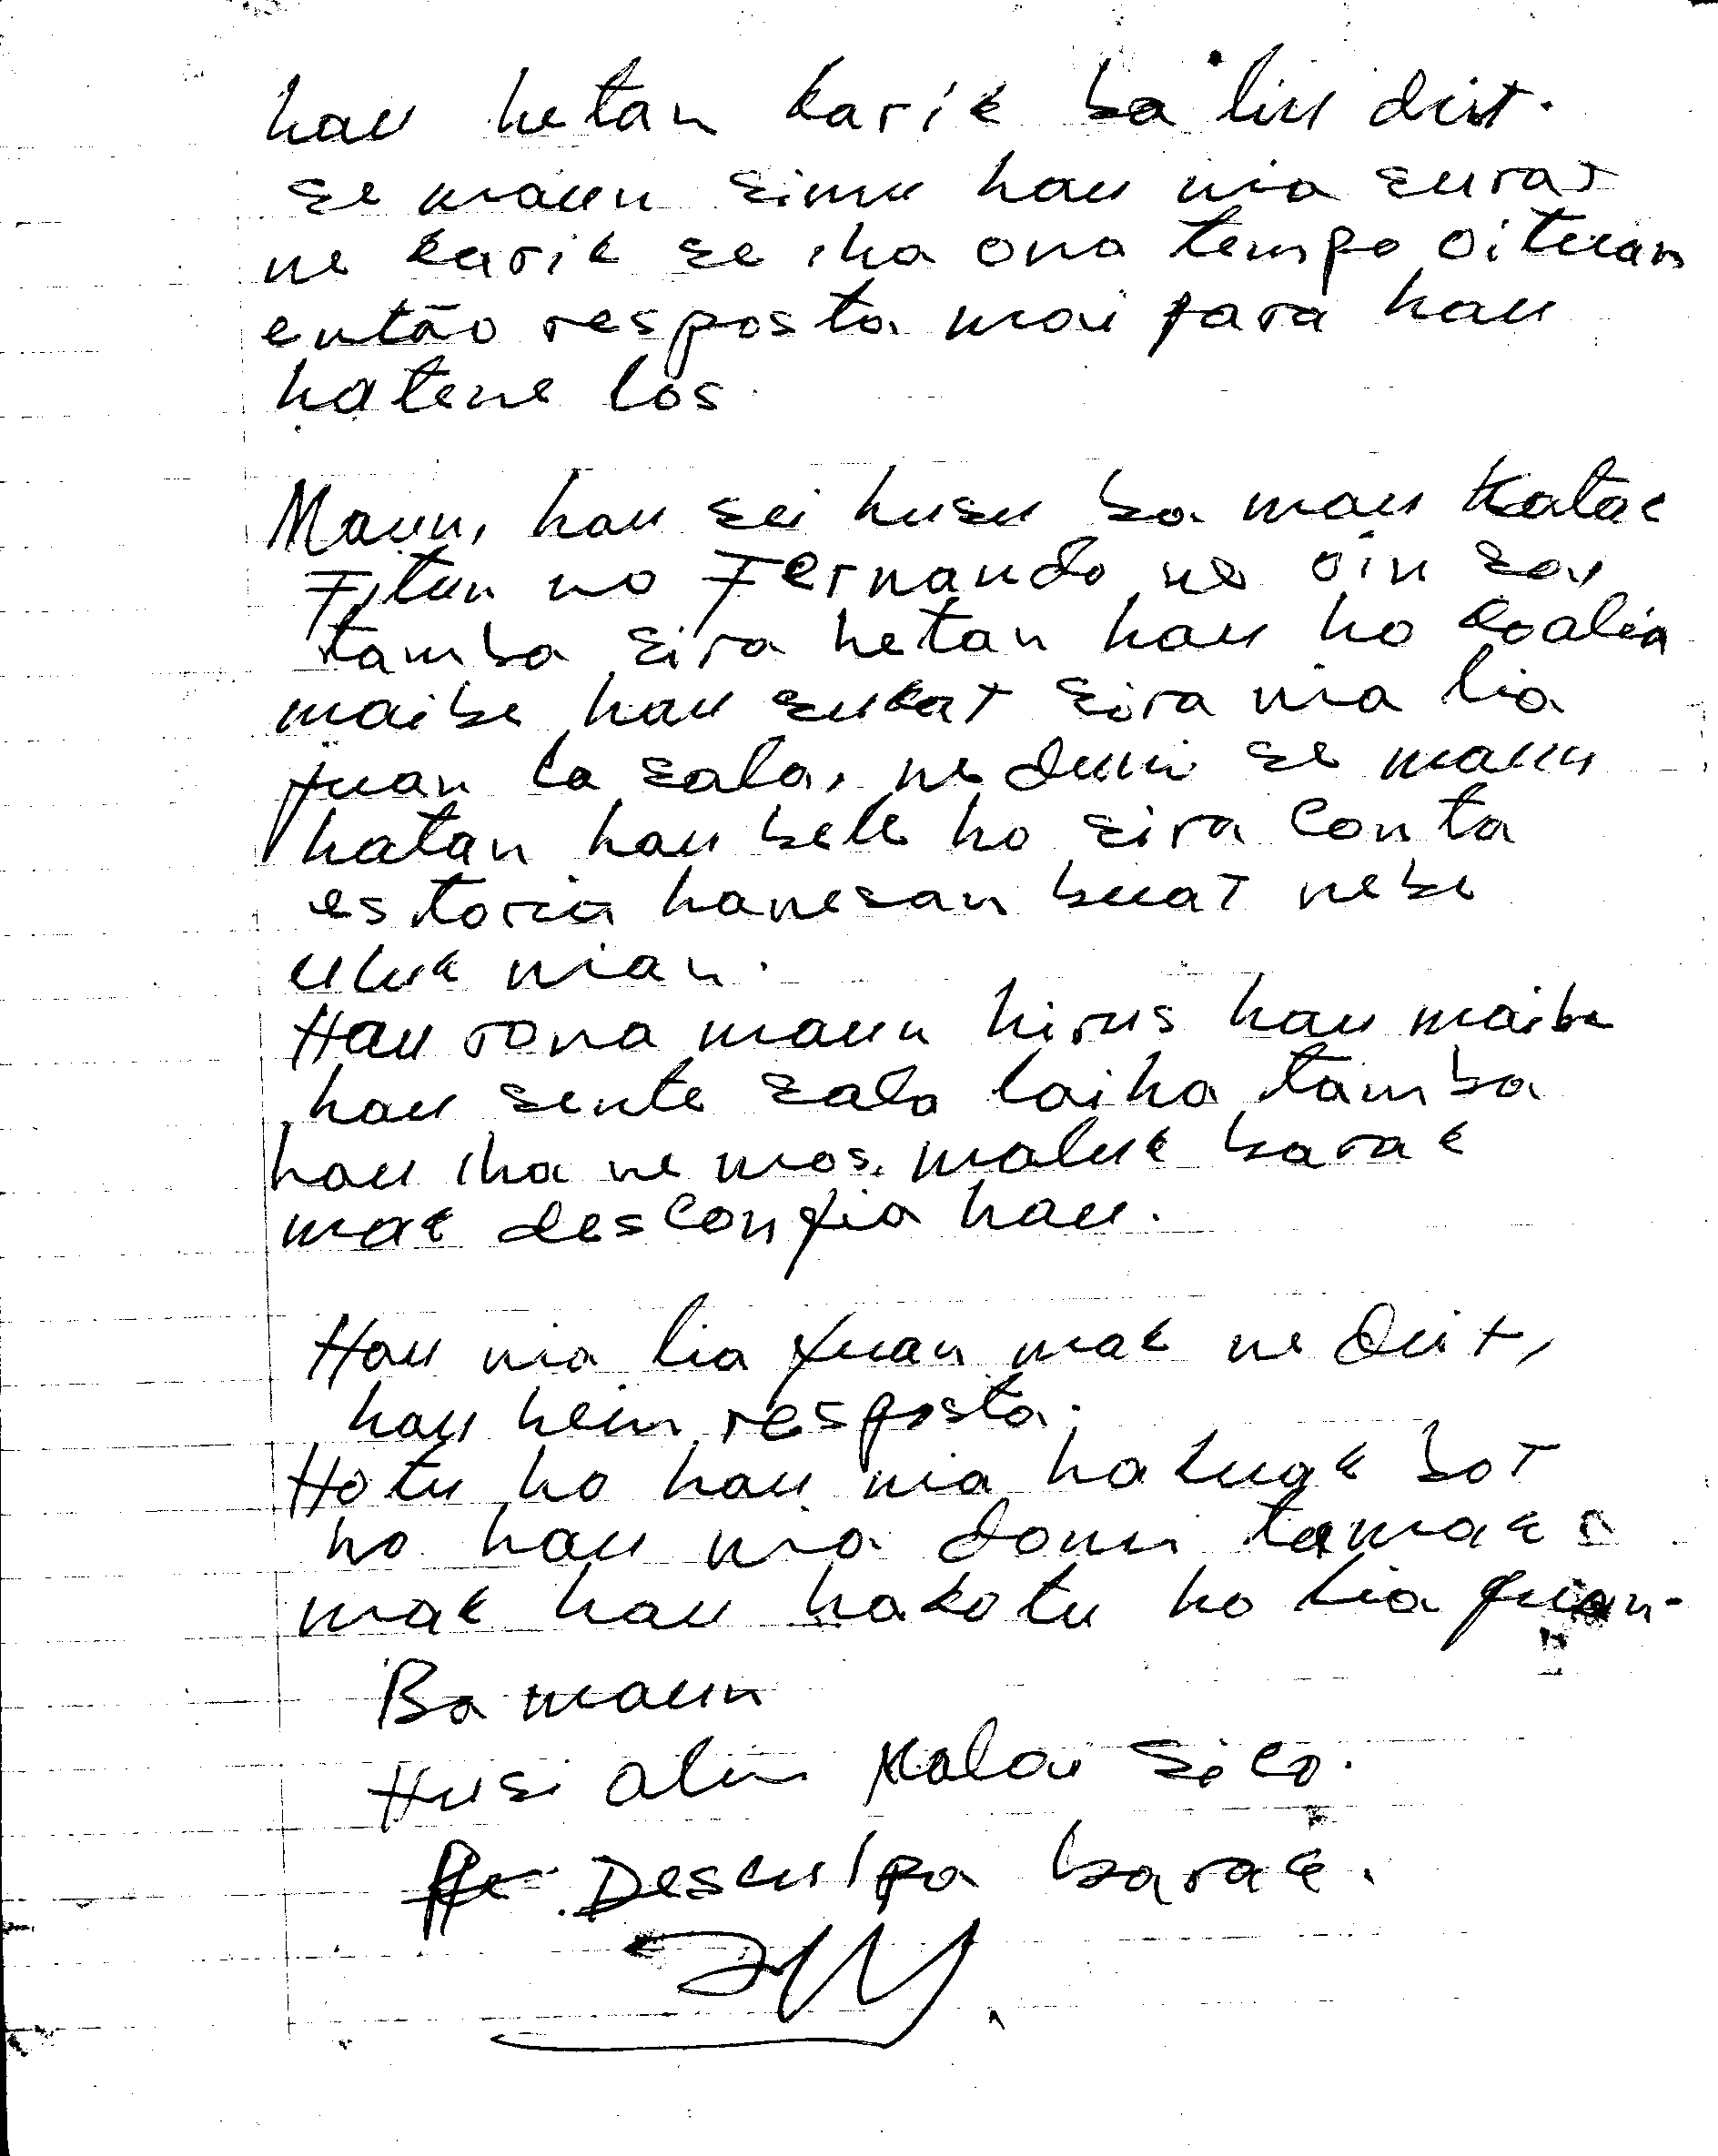 hau hetan karik ba liu deit.
se maun simu hau nia surat
ne karik se iha ona tempo oituan
então resposta mai para hau
hatene los.
Maun, hau sei husu ba maun katak
Fitun no Fernando ne oin sa
tamba sira hetan hau ho koalia
maibe hau sukat sira nia lia
fuan la sala, ne duni se maun
hatan hau bele ho sira conta
estoria hanesan buat nebe
uluk nian.
Hau rona maun hirus hau maibe
hau sente sala laiha tamba
hau iha ne mos maluk barak
mak desconfia hau.
Hau nia lia fuan mak ne deit,
hau hein resposta.
Hotu ho hau nia hakuak bot
no hau nia domi tamak
mak hau hakotu ho lia fuan.
Ba maun
Husi alin Kalai Sico.
Desculpa barak.